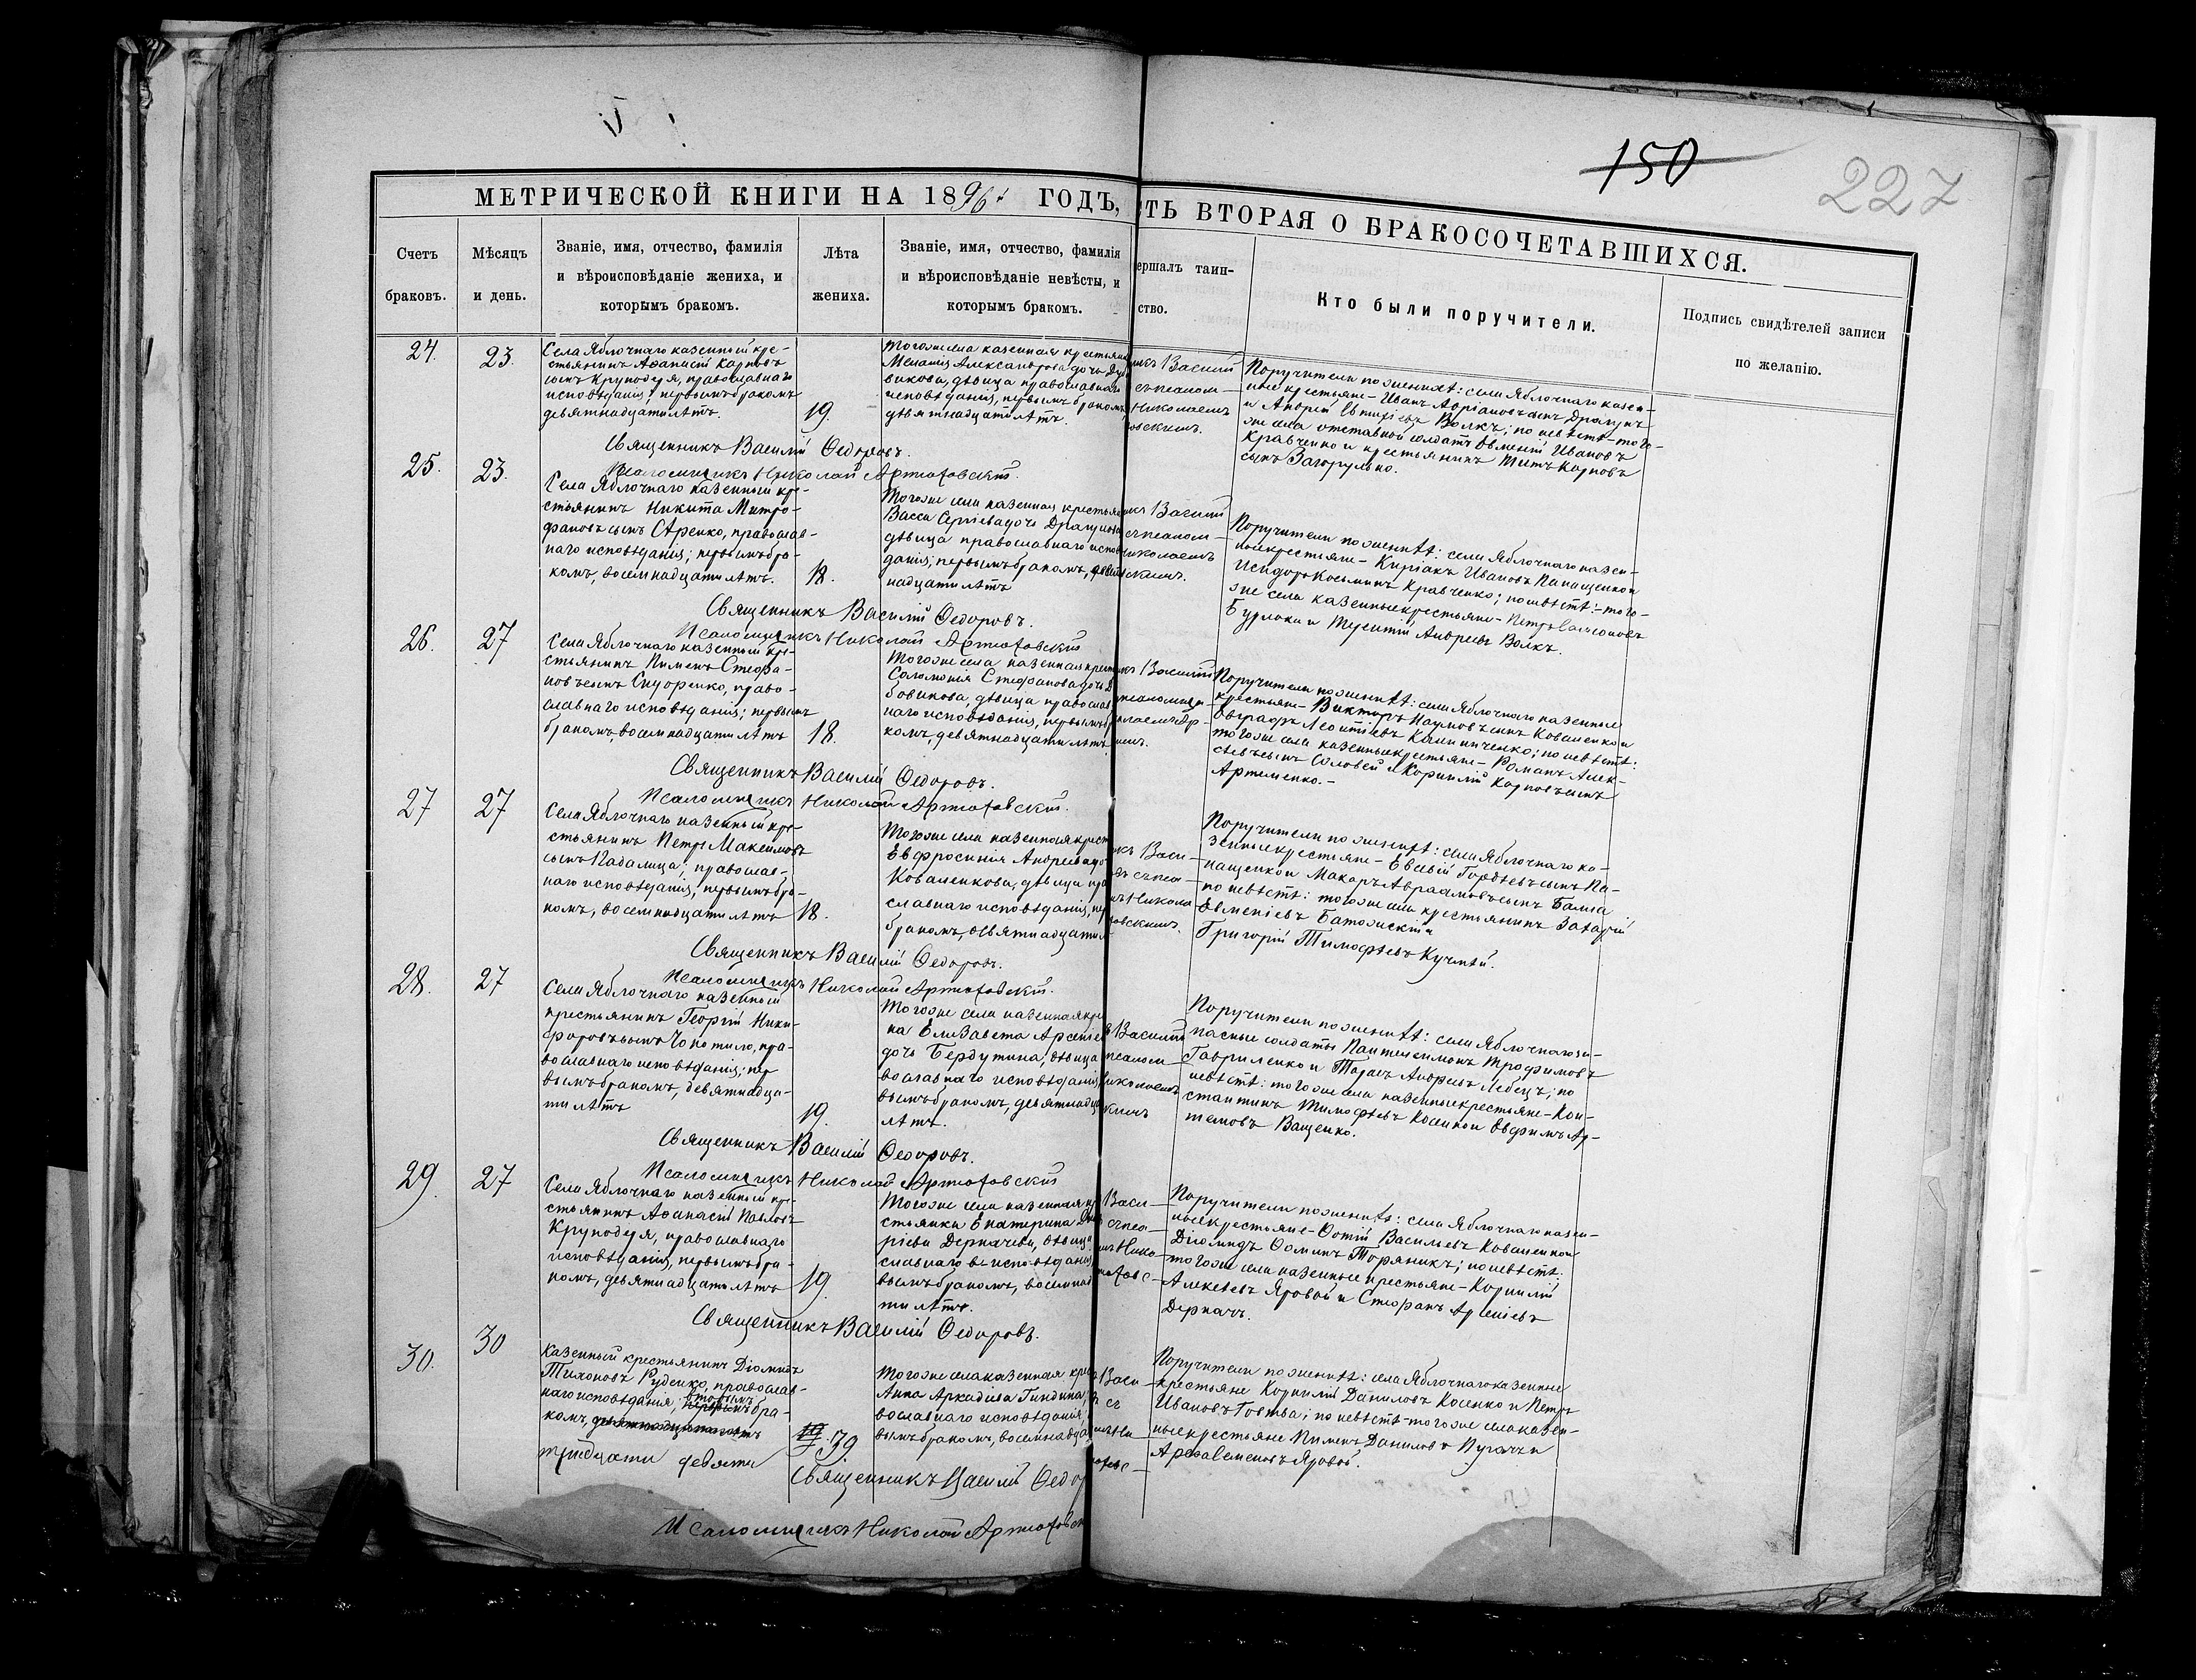 150
227
МЕТРИЧЕСКОЙ КНИГИ НА 1896 г ГОДЪ,
ТЬ ВТОРАЯ О БРАКОСОЧЕТАВШИХСЯ.
Счетъ
браковъ.
Мѣсяцъ
и день.
Званіе, имя, отчество, фамилія
и вѣроисповѣданіе жениха, и
которымъ бракомъ.
Лѣта
жениха.
Званіе, имя, отчество, фамилія
и вѣроисповѣданіе невѣсты, и
которымъ бракомъ.
ершалъ таин-
ство.
Кто были поручители.
Подпись свидѣтелей записи
по желанію.
24.
23.
Села Яблочнаго казенный кре-
стьянинъ Аѳанасій Карповъ
сынъ Круподеря, православнаго
исповѣданія, первымъ бракомъ
девятнадцати лѣтъ.
19.
Тогоже села казенная крестьянк
Меланія Александрова дочь
викова, дѣвица православнаго
исповѣданія, первымъ бракомъ,
девятнадцати лѣтъ.
икъ Василій
съ псалом-
Николаемъ
овскимъ.
Поручители по женихѣ: села Яблочнаго казен-
ные крестьяне - Иванъ Адріановъ сынъ Драгунъ
и Андрей Волкъ; по невѣстѣ - того-
же села отставной солдатъ Евменій Ивановъ
Кравченко и крестьянинъ Титъ Карповъ
сынъ Загорулько.
Священникъ Василій Ѳедоровъ.
Псаломщикъ Николай Артюховскій.
25.
23.
Села Яблочнаго казенный кре-
стьянинъ Никита Митро-
фановъ сынъ Сѣренко, православ-
наго исповѣданія; первымъ бра-
комъ, восемнадцати лѣтъ.
18.
Тогоже села казенная крестья
Васса Сергіева дочь Драгунова
дѣвица православнаго испов
данія; первымъ бракомъ,
надцати лѣтъ
икъ Василій
съ псалом-
Николаемъ
скимъ.
Поручители по женихѣ: села Яблочнаго казен-
ные крестьяне - Киріакъ Ивановъ Панащенко и
Исидоръ Косьминъ Кравченко; по невѣстѣ: - того-
же села казенные крестьяне - Петръ Самсоновъ
Бурлака и Терентій Андреевъ Волкъ.
Священникъ Василій Ѳедоровъ.
Псаломщикъ Николай Артюховскій
26.
27
Села Яблочнаго казенный кре-
стьянинъ Пименъ Стефа-
новъ сынъ Сидоренко, право-
славнаго исповѣданія; первымъ
бракомъ, восемнадцати лѣтъ
18.
Тогоже села казенная крест
Соломонія Стефанова дочь
бовикова, дѣвица православ
наго исповѣданія, первымъ б
комъ, девятнадцати лѣтъ
икъ Василій
псаломщи-
колаемъ Ар-
имъ.
Поручители по женихѣ: села Яблочнаго казенные
крестьяне - Викторъ Наумовъ сынъ Коваленко и
Евграфъ Леонтіевъ Калиниченко; по невѣстѣ:
тогоже села казенные крестьяне - Романъ Алек-
сѣевъ сынъ Соловей и Корнилій Карповъ сынъ
Артеменко. -
Священникъ Василій Ѳедоровъ.
Псаломщикъ Николай Артюховскій.
27
27
Села Яблочнаго казенный кре-
стьянинъ Петръ Максимовъ
сынъ Падалица; православ-
наго исповѣданія, первымъ бра-
комъ, восемнадцати лѣтъ
18.
Тогоже села казенная крест
Евфросинія Андреева до
Коваленкова, дѣвица пра
славнаго исповѣданія, пе
бракомъ, девятнадцати л
икъ Васи-
ъ съ пса-
ъ Никола
ховскимъ.
Поручители по женихѣ: села Яблочнаго ка-
зенные крестьяне - Евсевій Гордѣевъ сынъ Па-
нащенко и Макаръ Авраамовъ сынъ Балка
по невѣстѣ: тогоже села крестьянинъ Захарій
Евменіевъ Батожскій и
Григорій Тимофѣевъ Кучмѣй.
Священникъ Василій Ѳедоровъ.
Псаломщикъ Николай Артюховскій.
28.
27
Села Яблочнаго казенный
крестьянинъ Георгій Ники-
форовъ сынъ Чопотило, пра-
вославнаго исповѣданія; пер
вымъ бракомъ, девятнадца-
ти лѣтъ
19.
Тогоже села казенная кре
ка Елизавета Арсеніев
дочь Бердутина, дѣвица
вославнаго исповѣданія
вымъ бракомъ, девятнадца
лѣтъ.
Василій
псалом-
иколаемъ
кимъ
Поручители по женихѣ: села Яблочнаго за-
пасные солдаты Пантелеимонъ Трофимовъ
Гавриленко и Тарасъ Андреевъ Лебедь; по
невѣстѣ: тогоже села казенные крестьяне - Кон-
стантинъ Тимофѣевъ Косенко и Евфимъ Ар-
темовъ Ващенко.
Священникъ Василій Ѳедоровъ.
Псаломщикъ Николай Артюховскій
29.
27
Села Яблочнаго казенный кре-
стьянинъ Аѳанасій Павловъ
Круподеря, православнаго
исповѣданія, первымъ бра-
комъ, девятнадцати лѣтъ
19.
Тогоже села казенная кр
стьянка Екатерина
ріева Деркачева, дѣвица
славнаго вѣ исповѣданія
вымъ бракомъ, восемнад
ти лѣтъ.
Васи-
съ пса-
Нико-
тюховс-
Поручители по женихѣ: села Яблочнаго казен-
ные крестьяне - Фотій Васильевъ Коваленко и
Діомидъ Ѳоминъ Торяникъ; по невѣстѣ:
тогоже села казенные крестьяне - Корнилій
Алексѣевъ Яровой и Стефанъ Арсеніевъ
Деркачъ.
Священникъ Василій Ѳедоровъ.
30.
30
Казенный крестьянинъ Діомидъ
Тихоновъ Руденко, православ-
наго исповѣданія, вторымъ бра-
комъ, девятнадцати лѣтъ
тридцати девяти
19. 39
Тогоже села казенная крес
Анна Аркадіева Гиндина,
вославнаго исповѣданія,
вымъ бракомъ, восемнадца
Васи-
съ
Ни-
юховс-
Поручители по женихѣ: села Яблочнаго казенные
крестьяне Корнилій Даниловъ Косенко и Петръ
Ивановъ Говтва; по невѣстѣ - тогоже села казен-
ные крестьяне Пименъ Даниловъ Пугачъ и
Арефа Семеновъ Яровой.
Священникъ Василій Ѳедор
Псаломщикъ Николай Артюховск